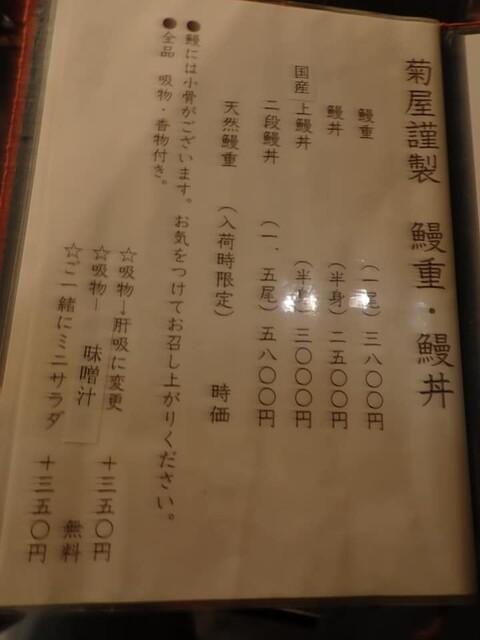 菊屋謹製 鰻重・鰻丼
鰻重 （一尾） 三八〇〇円
鰻丼 （半身） 二五〇〇円
国産 上鰻丼 （半身） 三〇〇〇円
二段鰻丼 （一、五尾） 五八〇〇円
天然鰻重 （入荷時限定） 時価
●鰻には小骨がございます。お気をつけてお召し上がりください。
●全品 吸物・香物付き。
☆吸物→肝吸に変更 ＋三五〇円
☆吸物＝味噌汁 無料
☆ご一緒にミニサラダ ＋三五〇円